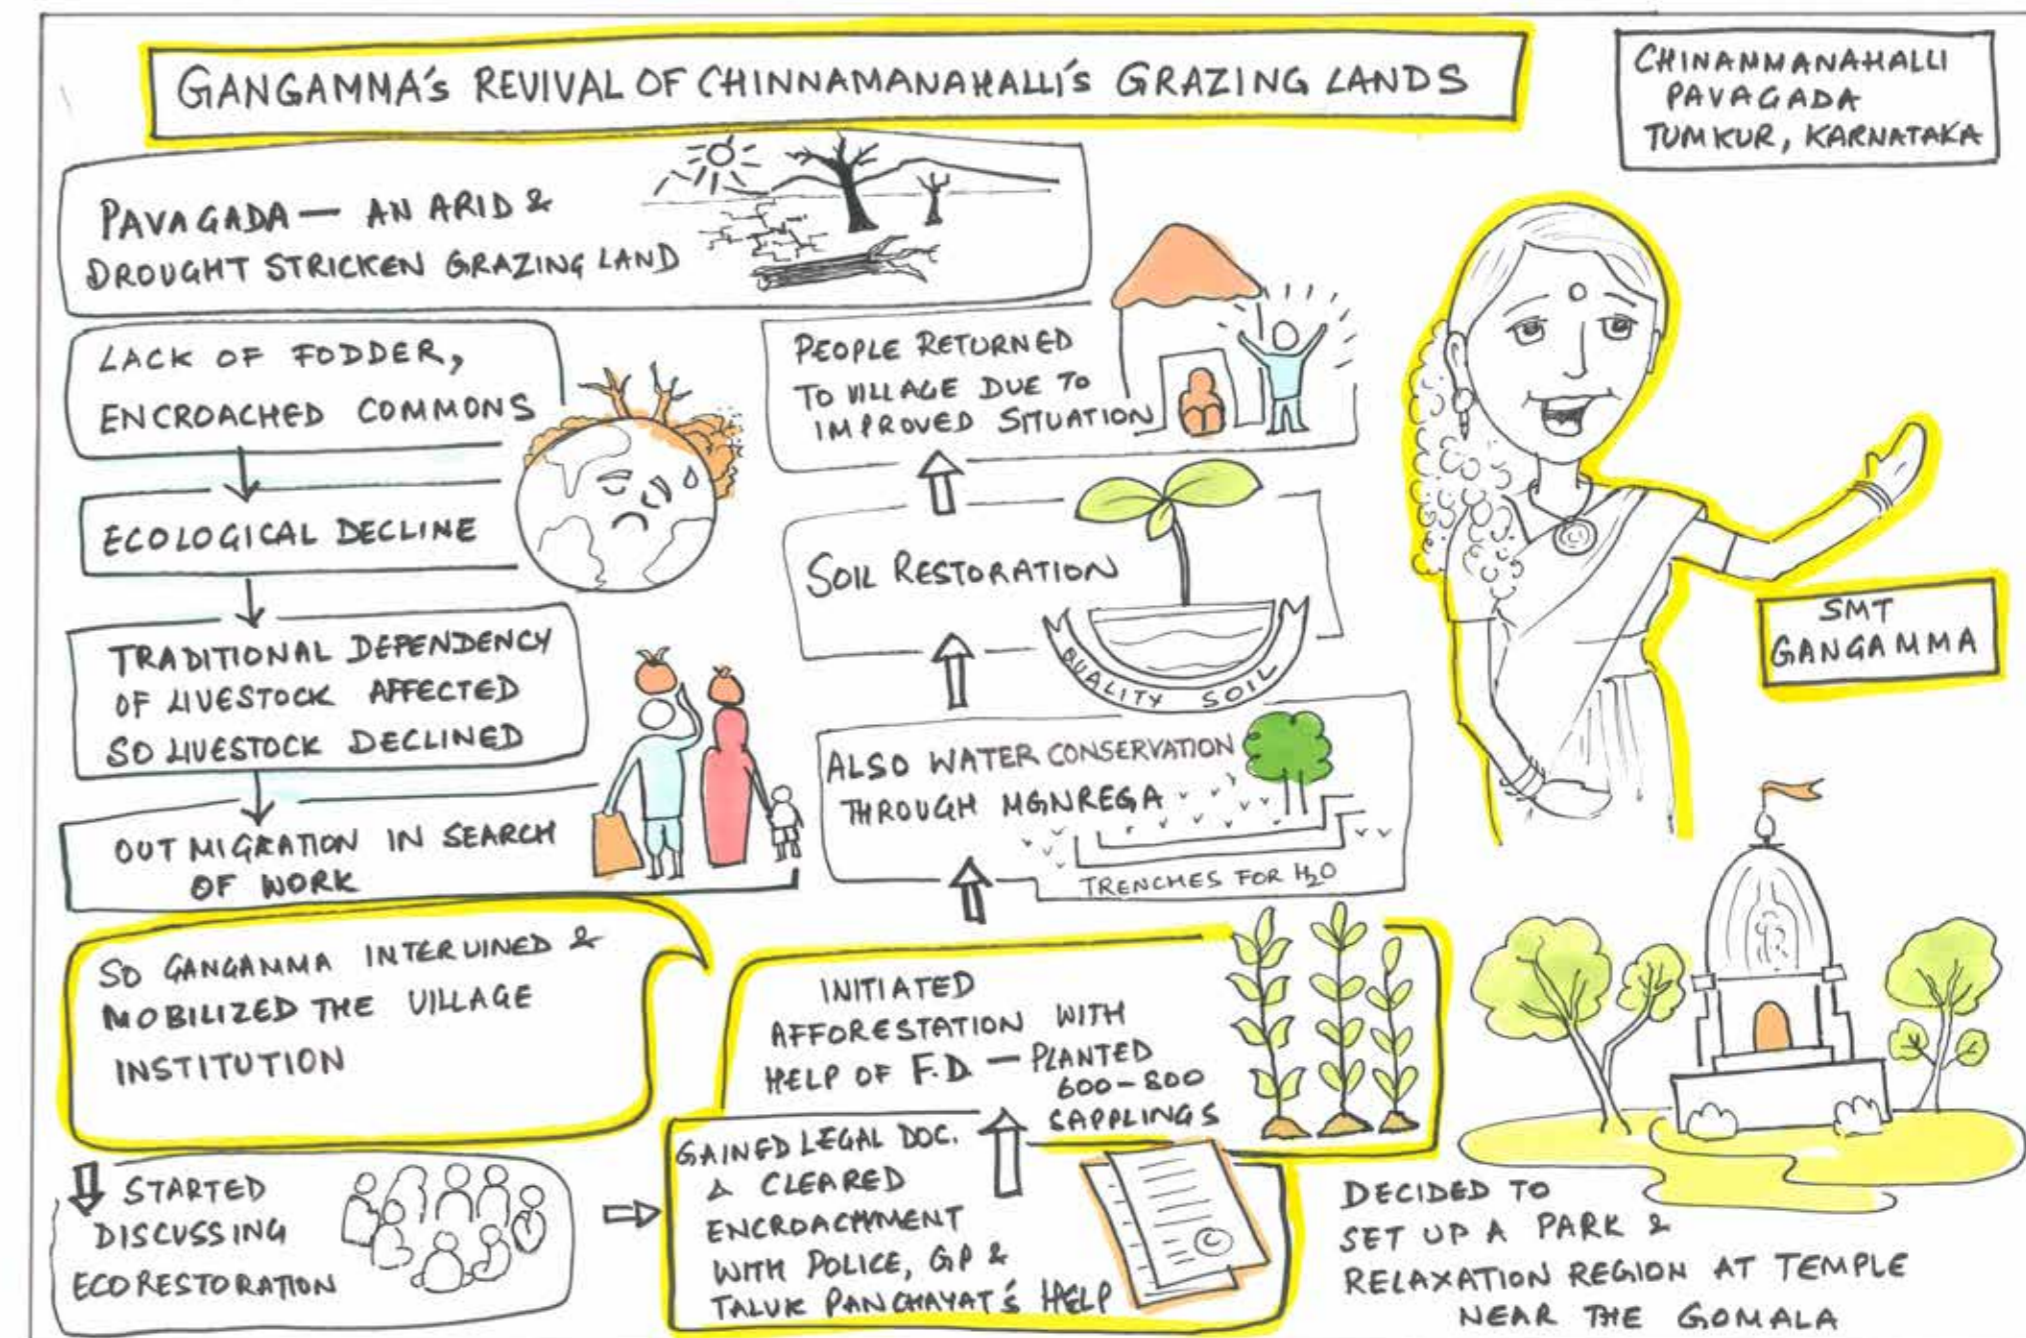 GANGAMMA'S REVIVAL OF CHINNAMANAHALLI'S GRAZING LANDS
CHINAMMANAHALLI
PAVAGADA
TUMKUR, KARNATAKA
PAVAGADA — AN ARID &
DROUGHT STRICKEN GRAZING LAND
LACK OF FODDER,
ENCROACHED COMMONS
ECOLOGICAL DECLINE
TRADITIONAL DEPENDENCY
OF LIVESTOCK AFFECTED
SO LIVESTOCK DECLINED
OUT MIGRATION IN SEARCH
OF WORK
SO GANGAMMA INTERVINED &
MOBILIZED THE VILLAGE
INSTITUTION
STARTED
DISCUSSING
ECORESTORATION
GAINED LEGAL DOC.
& CLEARED
ENCROACHMENT
WITH POLICE, GP &
TALUK PANCHAYAT'S HELP
INITIATED
AFFORESTATION WITH
HELP OF F.D. — PLANTED
600-800
SAPPLINGS
ALSO WATER CONSERVATION
THROUGH MGNREGA
TRENCHES FOR H2O
SOIL RESTORATION
QUALITY SOIL
PEOPLE RETURNED
TO VILLAGE DUE TO
IMPROVED SITUATION
SMT
GANGAMMA
DECIDED TO
SET UP A PARK &
RELAXATION REGION AT TEMPLE
NEAR THE GOMALA